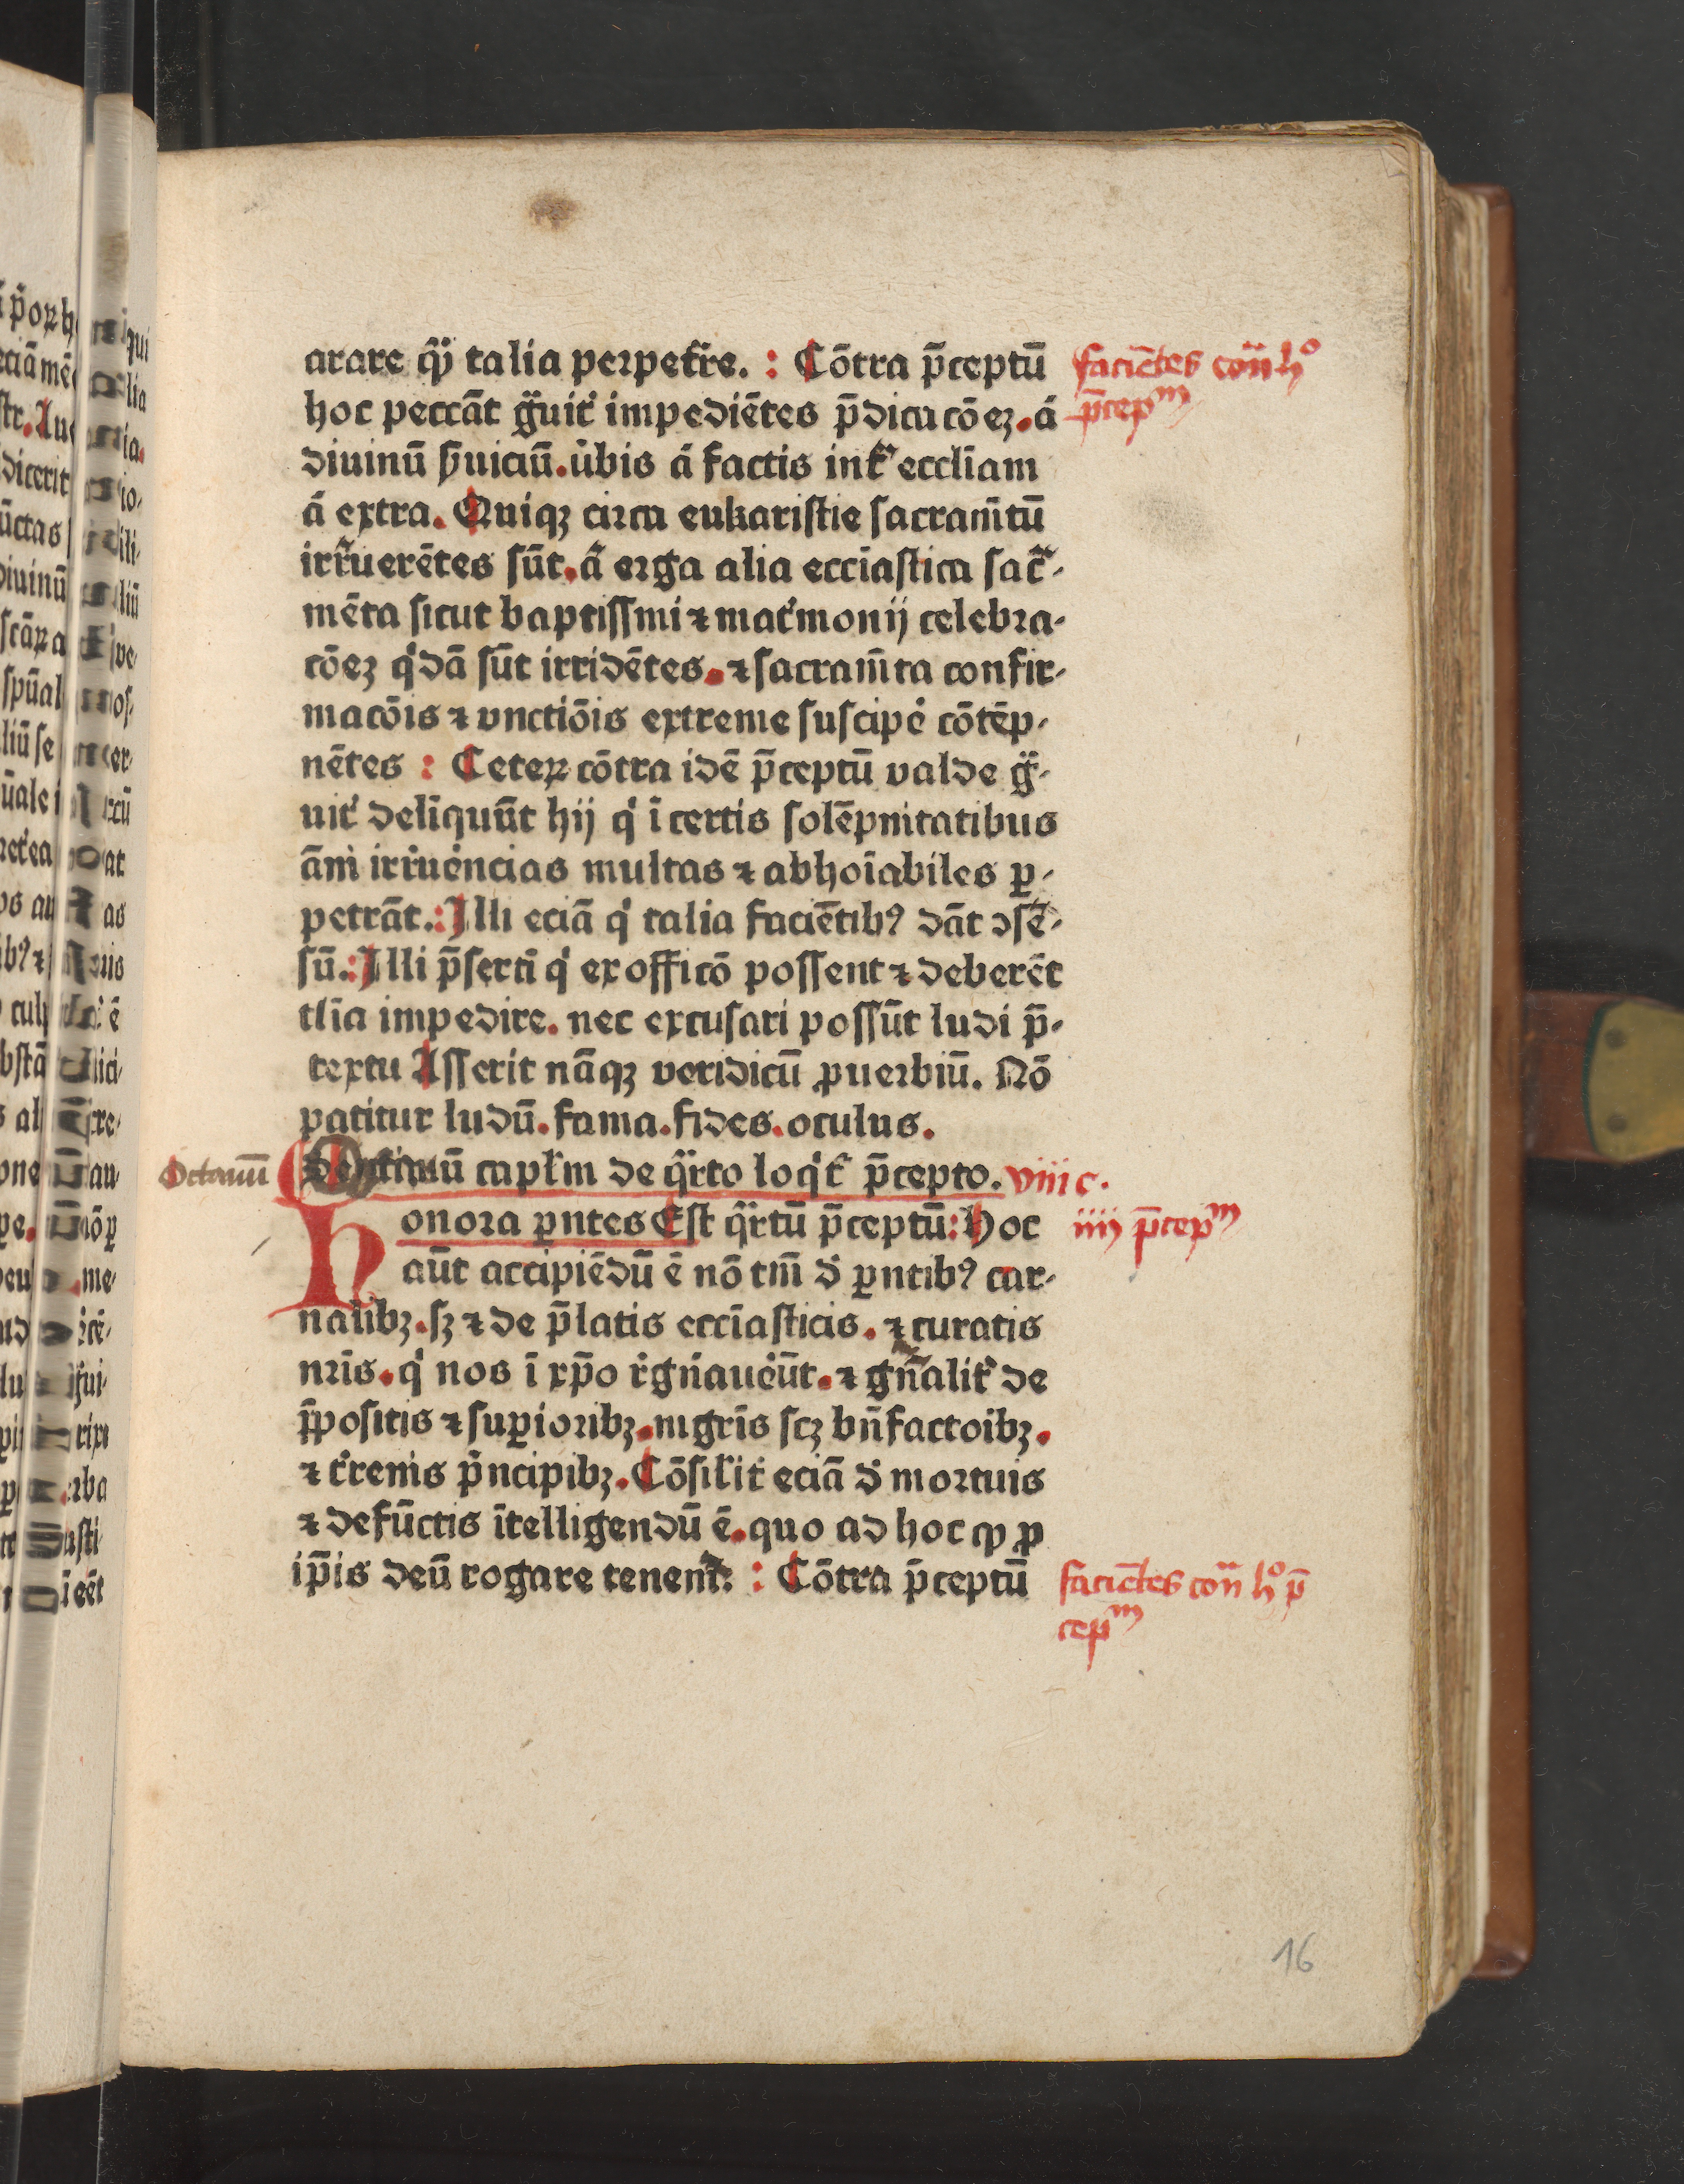 arare q̃ꝫ talia perpetr̃e. : Cōtra p̄ceptū
faciētes con̄ hº
hoc peccāt g̃uit̉ impediētes p̄dicacōeꝫ. á
p̄cepᵐ
diuinū ẜuiciū. u̇bis á factis int̾ eccl̄iam
á extra. Quiqꝫ circa eukaristie sacram̄tū
irr̃uerētes sūt. ā erga alia ecc̄iastica sac̃-
mēta sicut baptissmi ⁊ mat̉monij celebra-
cōeꝫ q̉dā sūt irridētes. ⁊ sacram̄ta confir-
macōis ⁊ vnctiōis extreme suscipe̓ cōtēp-
nētes : Ceteꝝ cōtra idē p̄ceptū valde g̃-
uit̉ deliquūt hij q̉ ī certis solēpnitatibus
ām̉ irr̃ue̓ncias multas ⁊ abhoīabiles ꝑ-
petrāt. : Illi eciā q̉ talia faciētibꝰ dāt ↄsē-
sū. : Illi p̄sertī q̉ ex officō possent ⁊ deberēt
tl̄ia impedire. nec excusari possūt ludi p̄-
textu Asserit nāqꝫ veridicū ꝓuerbiū. Nō
patitur ludū. fama. fides. oculus.
Octauū
capl̄m de q̃rto loq̉t̉ p̄cepto. viii c.
Honora ꝑntes Est q̃rtū p̄ceptū: Hoc
iiij p̄cepᵐ
aūt accipiēdū ē nō tm̄ đ ꝑntibꝰ car-
nalibꝫ. sꝫ ⁊ de p̄latis ecc̄iasticis. ⁊ curatis
nr̄is. q̉ nos ī xp̄o r̉gn̄aue̓ūt. ⁊ gn̄alit̉ de
p̄positis ⁊ suꝑioribꝫ. mgr̄is scꝫ bn̄factoibꝫ.
⁊ t̉renis p̉ncipibꝫ. Cōsil̉it̉ eciā đ mortuis
⁊ defūctis ītelligendū ē. quo ad hoc ꝙ ꝓ
ip̄is deū rogare tenent̉. : Cōtra p̄ceptū
faciētes con̄ hº p̄
cepᵐ
16